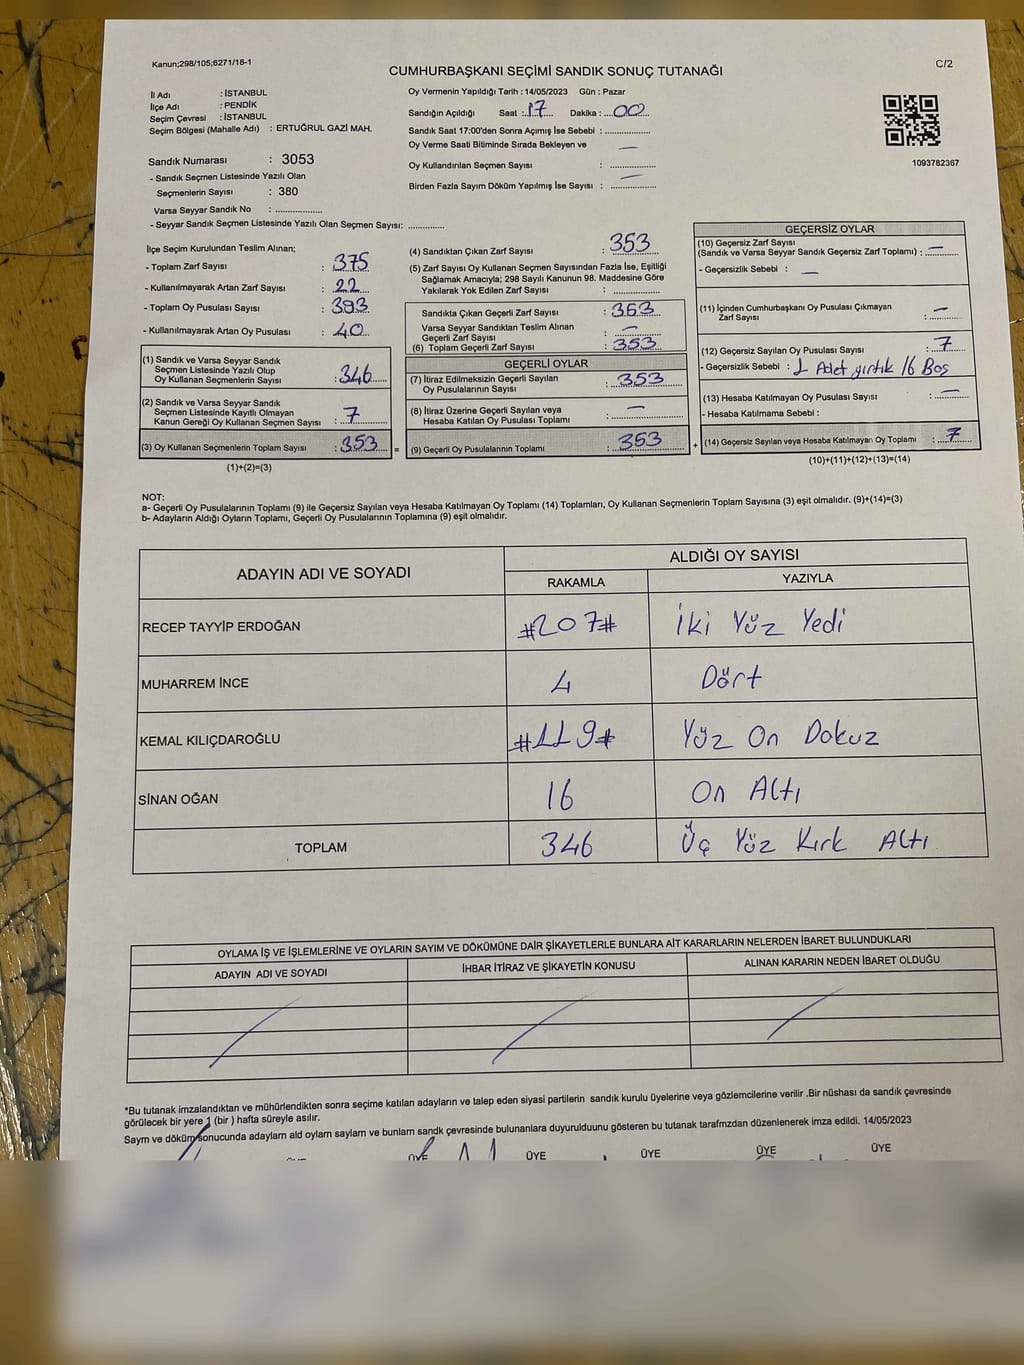 Kanun;298/105;6271/18-1
CUMHURBAŞKANI SEÇİMİ SANDIK SONUÇ TUTANAĞI
C/2
İl Adı : İSTANBUL
İlçe Adı : PENDİK
Seçim Çevresi : İSTANBUL
Seçim Bölgesi (Mahalle Adı) : ERTUĞRUL GAZİ MAH.
Sandık Numarası : 3053
- Sandık Seçmen Listesinde Yazılı Olan
Seçmenlerin Sayısı : 380
Varsa Seyyar Sandık No : ...................
- Seyyar Sandık Seçmen Listesinde Yazılı Olan Seçmen Sayısı: .............
Oy Vermenin Yapıldığı Tarih : 14/05/2023 Gün : Pazar
Sandığın Açıldığı Saat : 17 Dakika : 00
Sandık Saat 17:00'den Sonra Açımış İse Sebebi : ................
Oy Verme Saati Bitiminde Sırada Bekleyen ve —
Oy Kullandırılan Seçmen Sayısı : ................
Birden Fazla Sayım Döküm Yapılmış İse Sayısı : —
1093782367
İlçe Seçim Kurulundan Teslim Alınan;
- Toplam Zarf Sayısı : 375
- Kullanılmayarak Artan Zarf Sayısı : 22
- Toplam Oy Pusulası Sayısı : 393
- Kullanılmayarak Artan Oy Pusulası : 40
(1) Sandık ve Varsa Seyyar Sandık
Seçmen Listesinde Yazılı Olup
Oy Kullanan Seçmenlerin Sayısı : 346
(2) Sandık ve Varsa Seyyar Sandık
Seçmen Listesinde Kayıtlı Olmayan
Kanun Gereği Oy Kullanan Seçmen Sayısı : 7
(3) Oy Kullanan Seçmenlerin Toplam Sayısı : 353 =
(1)+(2)=(3)
(4) Sandıktan Çıkan Zarf Sayısı : 353
(5) Zarf Sayısı Oy Kullanan Seçmen Sayısından Fazla İse, Eşitliği
Sağlamak Amacıyla; 298 Sayılı Kanunun 98. Maddesine Göre
Yakılarak Yok Edilen Zarf Sayısı : ................
Sandıkta Çıkan Geçerli Zarf Sayısı : 353
Varsa Seyyar Sandıktan Teslim Alınan
Geçerli Zarf Sayısı : —
(6) Toplam Geçerli Zarf Sayısı : 353
GEÇERLİ OYLAR
(7) İtiraz Edilmeksizin Geçerli Sayılan
Oy Pusulalarının Sayısı : 353
(8) İtiraz Üzerine Geçerli Sayılan veya
Hesaba Katılan Oy Pusulası Toplamı : —
(9) Geçerli Oy Pusulalarının Toplamı : 353 +
GEÇERSİZ OYLAR
(10) Geçersiz Zarf Sayısı
(Sandık ve Varsa Seyyar Sandık Geçersiz Zarf Toplamı) : —
- Geçersizlik Sebebi : —
(11) İçinden Cumhurbaşkanı Oy Pusulası Çıkmayan
Zarf Sayısı : —
(12) Geçersiz Sayılan Oy Pusulası Sayısı : 7
- Geçersizlik Sebebi : 1 Adet yırtık 16 Boş
(13) Hesaba Katılmayan Oy Pusulası Sayısı : —
- Hesaba Katılmama Sebebi :
(14) Geçersiz Sayılan veya Hesaba Katılmayan Oy Toplamı : 7
(10)+(11)+(12)+(13)=(14)
NOT:
a- Geçerli Oy Pusulalarının Toplamı (9) ile Geçersiz Sayılan veya Hesaba Katılmayan Oy Toplamı (14) Toplamları, Oy Kullanan Seçmenlerin Toplam Sayısına (3) eşit olmalıdır. (9)+(14)=(3)
b- Adayların Aldığı Oyların Toplamı, Geçerli Oy Pusulalarının Toplamına (9) eşit olmalıdır.
ADAYIN ADI VE SOYADI
ALDIĞI OY SAYISI
RAKAMLA YAZIYLA
RECEP TAYYİP ERDOĞAN #207# İki Yüz Yedi
MUHARREM İNCE 4 Dört
KEMAL KILIÇDAROĞLU #119# Yüz On Dokuz
SİNAN OĞAN 16 On Altı
TOPLAM 346 Üç Yüz Kırk Altı
OYLAMA İŞ VE İŞLEMLERİNE VE OYLARIN SAYIM VE DÖKÜMÜNE DAİR ŞİKAYETLERLE BUNLARA AİT KARARLARIN NELERDEN İBARET BULUNDUKLARI
ADAYIN ADI VE SOYADI İHBAR İTİRAZ VE ŞİKAYETİN KONUSU ALINAN KARARIN NEDEN İBARET OLDUĞU
*Bu tutanak imzalandıktan ve mühürlendikten sonra seçime katılan adayların ve talep eden siyasi partilerin sandık kurulu üyelerine veya gözlemcilerine verilir .Bir nüshası da sandık çevresinde
görülecek bir yere 1 (bir ) hafta süreyle asılır.
Saym ve döküm sonucunda adaylarn ald oylarn saylarn ve bunlarn sandk çevresinde bulunanlara duyurulduunu gösteren bu tutanak tarafmzdan düzenlenerek imza edildi. 14/05/2023
ÜYE ÜYE ÜYE ÜYE ÜYE